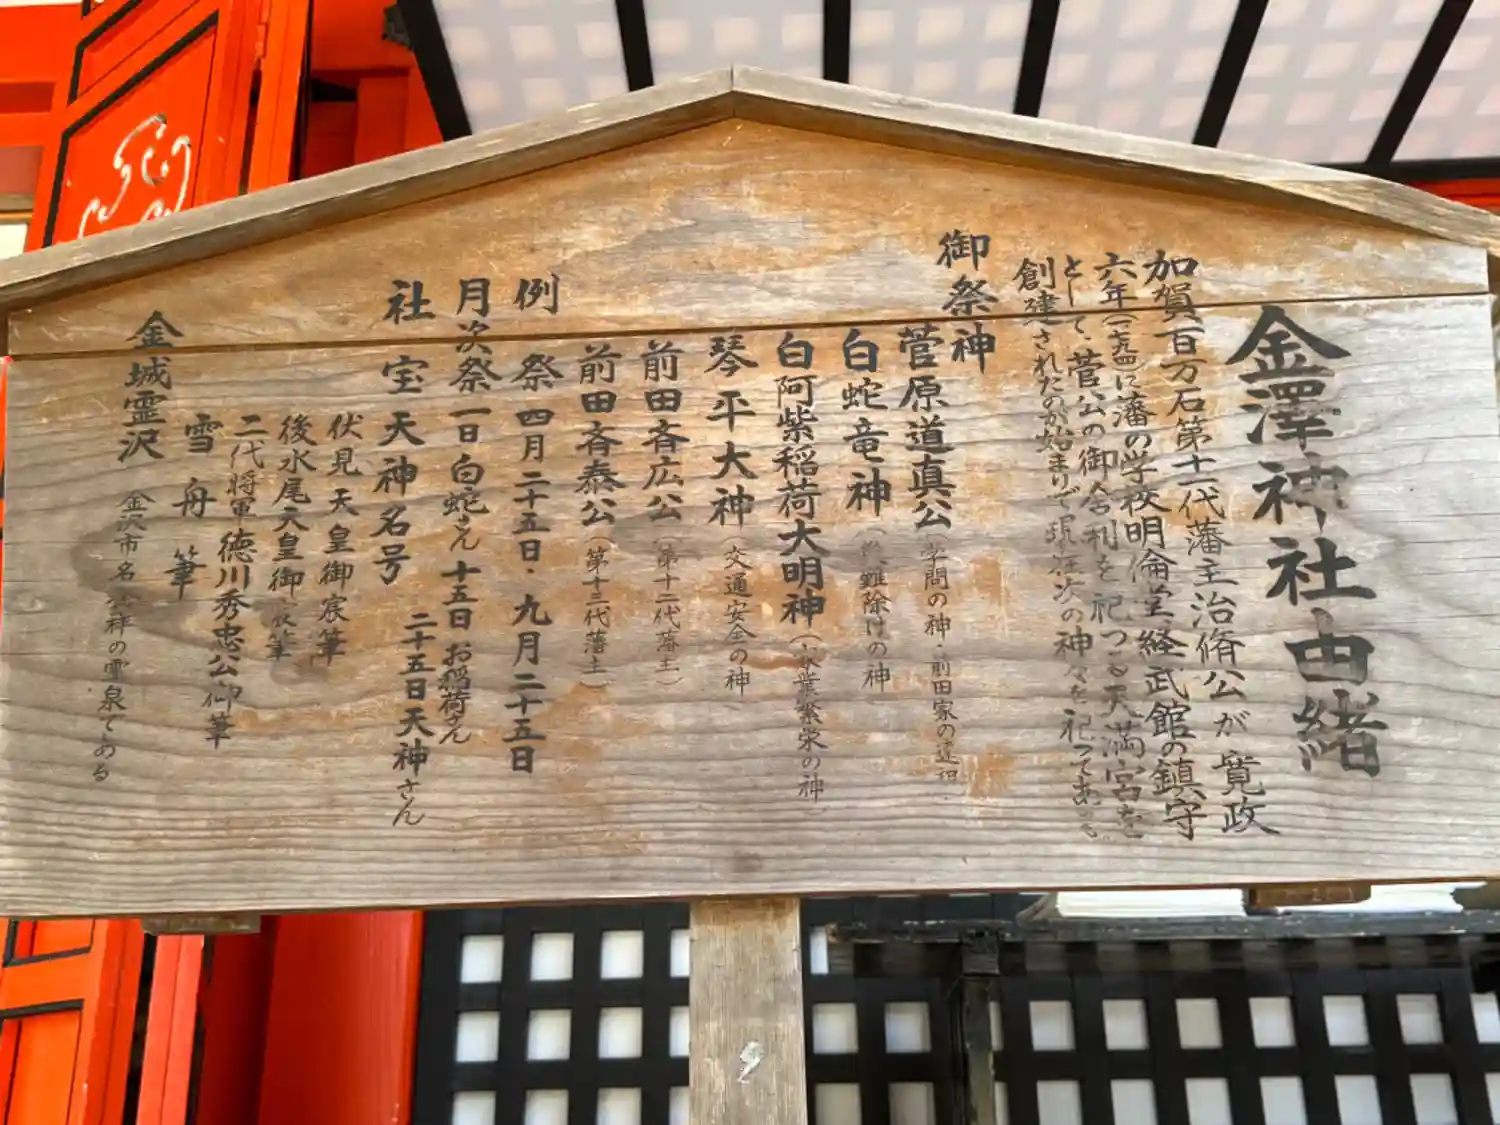 金澤神社由緒
加賀百万石第十一代藩主治脩公が寛政
六年(一七九四)に藩の学校明倫堂、経武館の鎮守
として、菅公の御舎利を祀つる天満宮を
創建されたのが始まりで現在次の神々を祀つてある
御祭神
菅原道真公(学問の神・前田家の遠祖
白蛇竜神(災難除けの神
白阿紫稲荷大明神(家業繁栄の神)
琴平大神(交通安全の神
前田斉広公(第十二代藩主)
前田斉泰公(第十三代藩主)
例祭 四月二十五日・九月二十五日
月次祭 一日白蛇さん 十五日お稲荷さん
二十五日天神さん
社宝 天神名号
伏見天皇御宸筆
後水尾天皇御宸筆
二代将軍徳川秀忠公御筆
雪舟筆
金城霊沢 金沢市名発祥の霊泉である